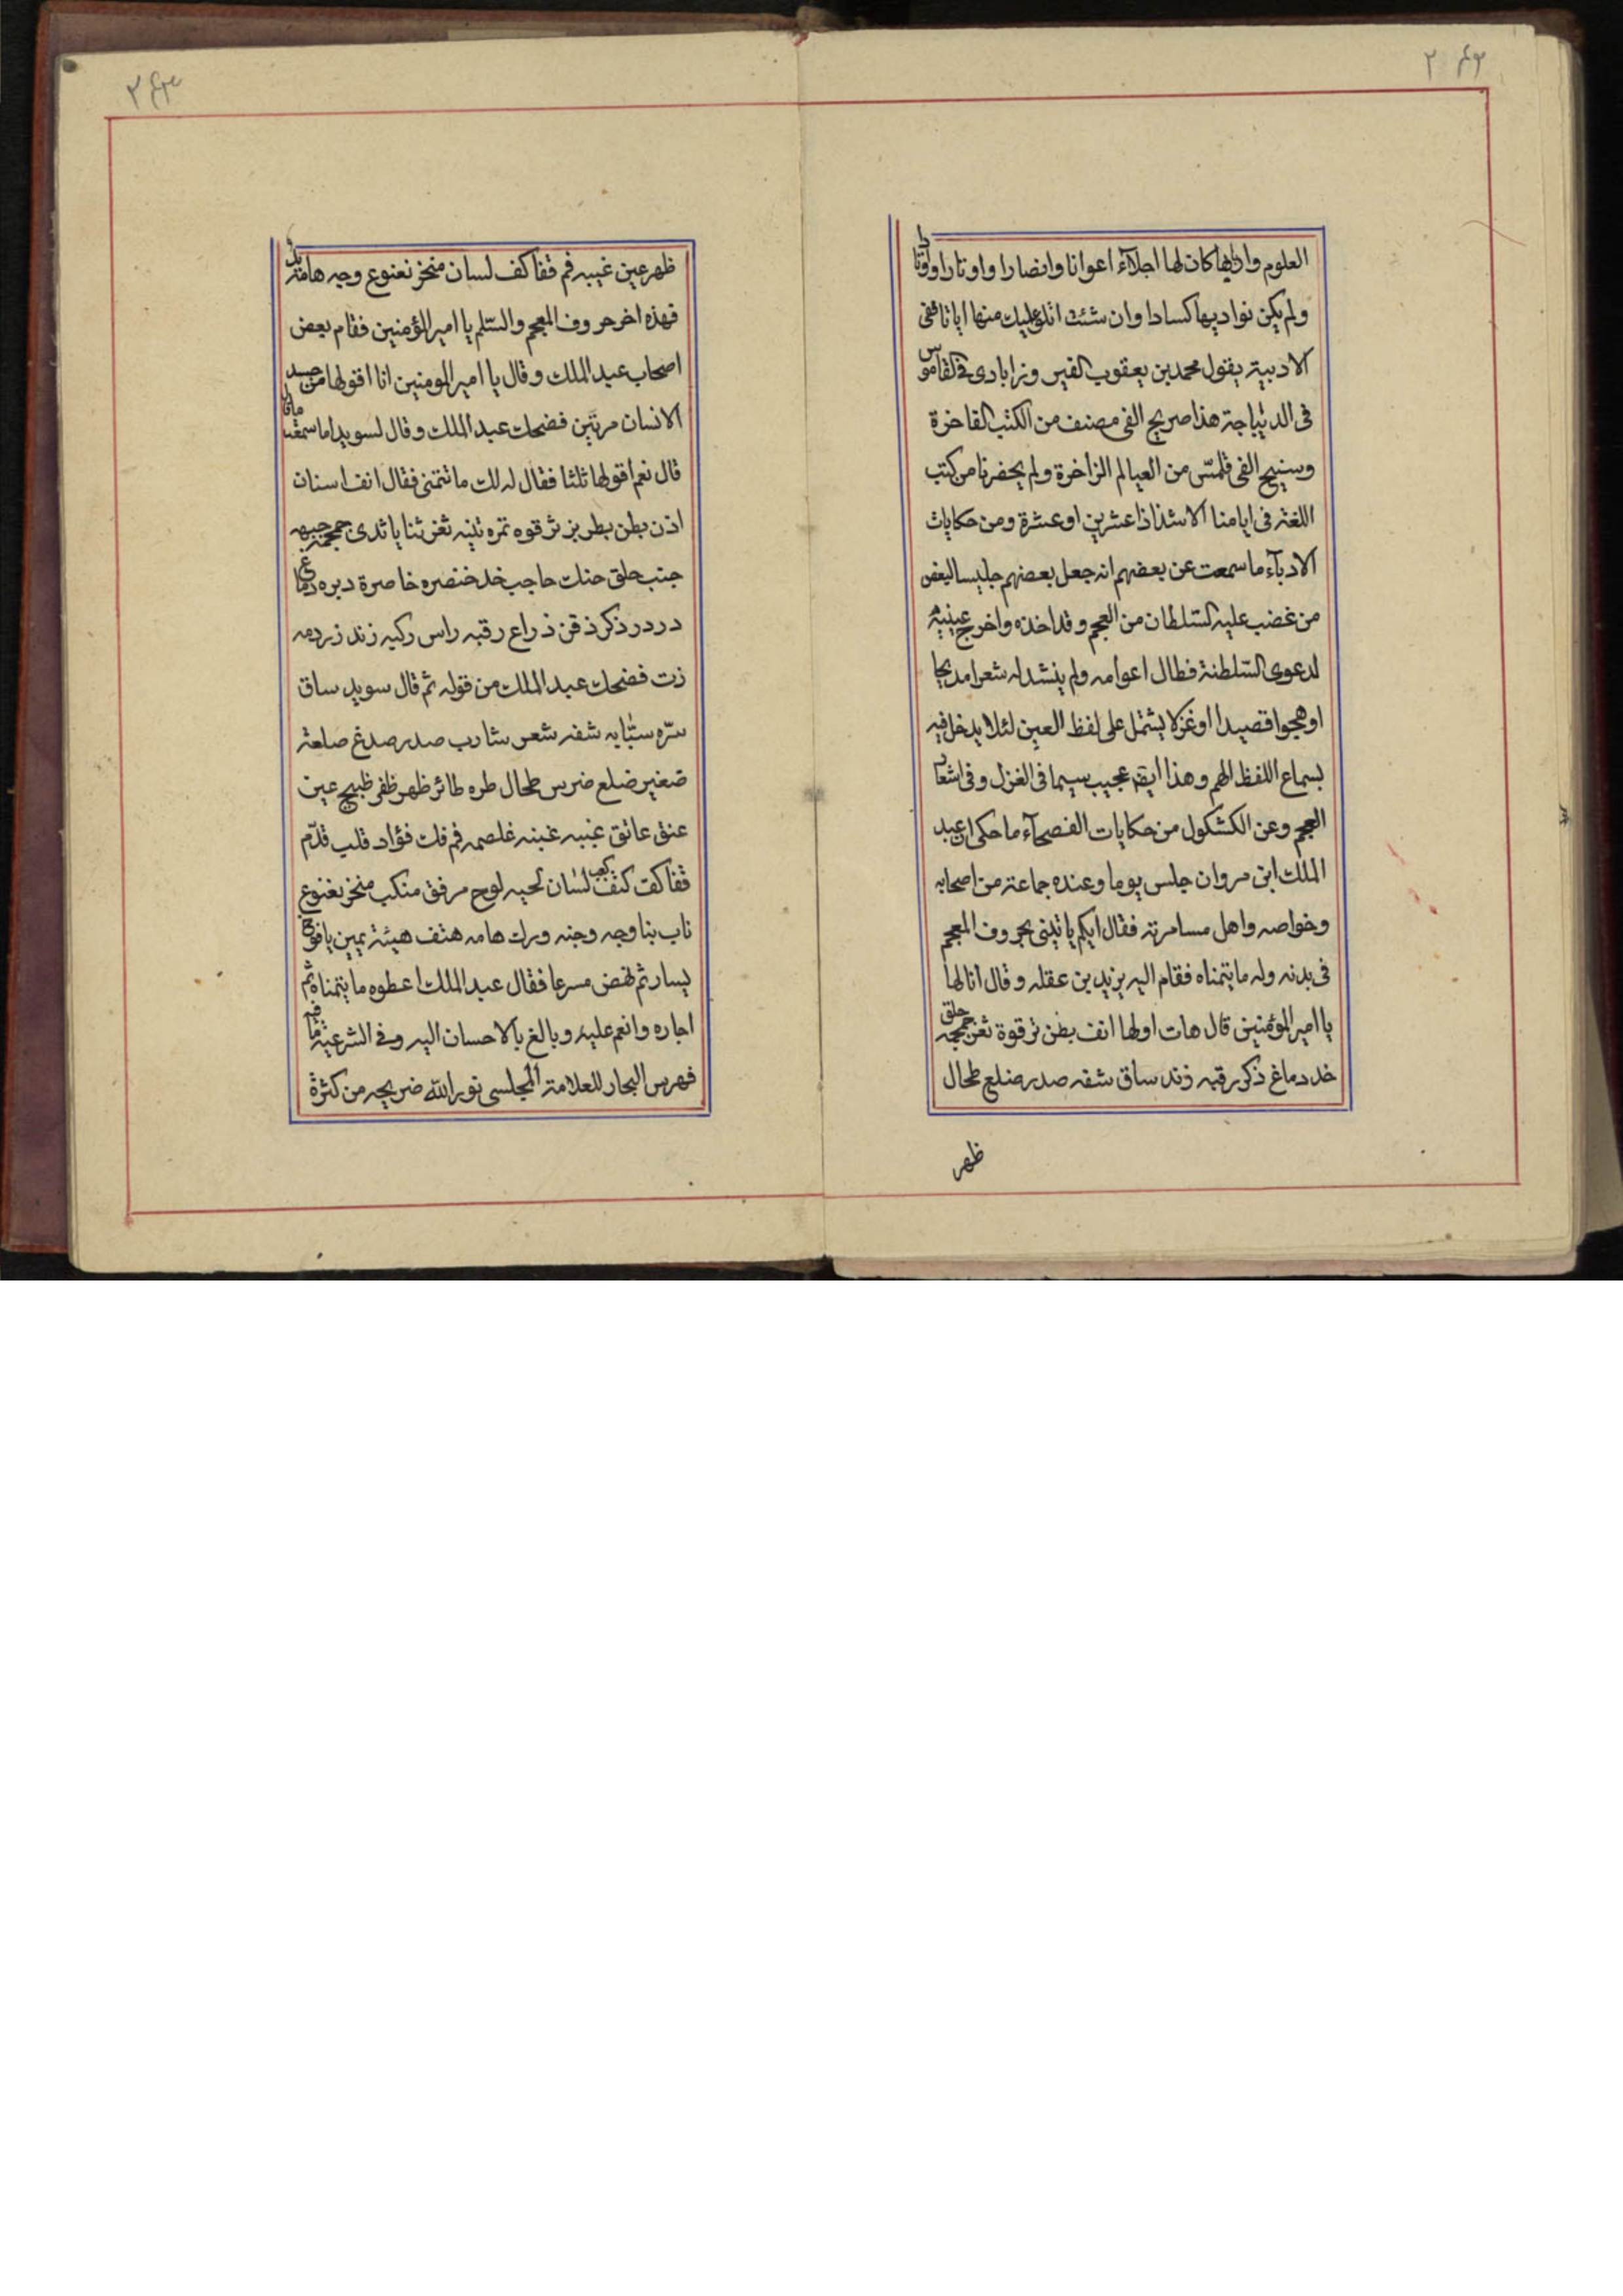 ۲۴۲
العلوم وان لها كان لها اجلآء اعوانا وانصارا واوتارا واوتادا
ولم يكن نواديها كسادا وان شئت اتلو عليك منها اياتا ففى
الادبية يقول محمد بن يعقوب الفيروزابادى فى القاموس
فى الديباجة هذا صريح الفى مصنف من الكتب الفاخرة
وسنيح الفى قلمّس من العيالم الزاخرة ولم يحضرنا من كتب
اللغة فى ايامنا الا شذاذا عشرين او عشرة ومن حكايات
الادبآء ما سمعت عن بعضهم انه جعل بعضهم جليسا لبعض
من غضب عليه السّلطان من العجم وقد اخذه واخرج عينيه
لدعوى السّلطنة فطال اعوامه ولم ينشد له شعرا مديحا
او هجوا قصيدا او غزلا يشتمل على لفظ العين لئلا يدخل فيه
بسماع اللفظ الهم وهذا ايضا عجيب سيما فى الغزل وفى اشعار
العجم وعن الكشكول من حكايات الفصحآء ما حكى ان عبد
الملك ابن مروان جلس يوما وعنده جماعة من اصحابه
وخواصه واهل مسامرته فقال ايكم ياتينى بحروف المعجم
فى بدنه وله ما يتمناه فقام اليه يزيد بن عقله وقال انا لها
يا امير المؤمنين قال هات اولها انف بطن ترقوة ثغر جمجمه حلق
خد دماغ ذكر رقبه زند ساق شفه صدر ضلع طحال
ظهر
۲۴۳
ظهر عين غيبه فم قفا كف لسان منخر نعنوع وجه هامة يد
فهذه اخر حروف المعجم والسّلم يا امير المؤمنين فقام بعض
اصحاب عبد الملك وقال يا امير المومنين انا اقولها من جسد
الانسان مرتين فضحك عبد الملك وقال لسويد اما سمعت ما قال
قال نعم اقولها ثلثا فقال له لك ما تتمنى فقال انف اسنان
اذن بطن بطر بز ترقوه تمره تينه ثغر ثنايا ثدى جمجمه جبهه
جنب حلق حنك حاجب خد خنصره خاصرة دبره دماغ
دردر ذكر ذقن ذراع رقبه راس ركبه زند زردمه
زت فضحك عبد الملك من قوله ثم قال سويد ساق
سرّه سبّابه شفه شعر شارب صدر صدغ صلعة
ضغير ضلع ضرس طحال طره طائر ظهر ظفر ظبيج عين
عنق عاتق غيبه غبنه غلصمه فم فك فؤاد قلب قدّم
قفا كف كتف كعب لسان لحيه لوح مرفق منكب منخر نغنوع
ناب بنا وجه وجنه ورك هامه هتف هيئة يمين يافوخ
يسار ثم نهض مسرعا فقال عبد الملك اعطوه ما يتمناه ثم
اجاره وانعم عليه وبالغ بالاحسان اليه وفى الشرعية
فهرس البحار للعلامة المجلسى نور الله ضريحه من كثرة